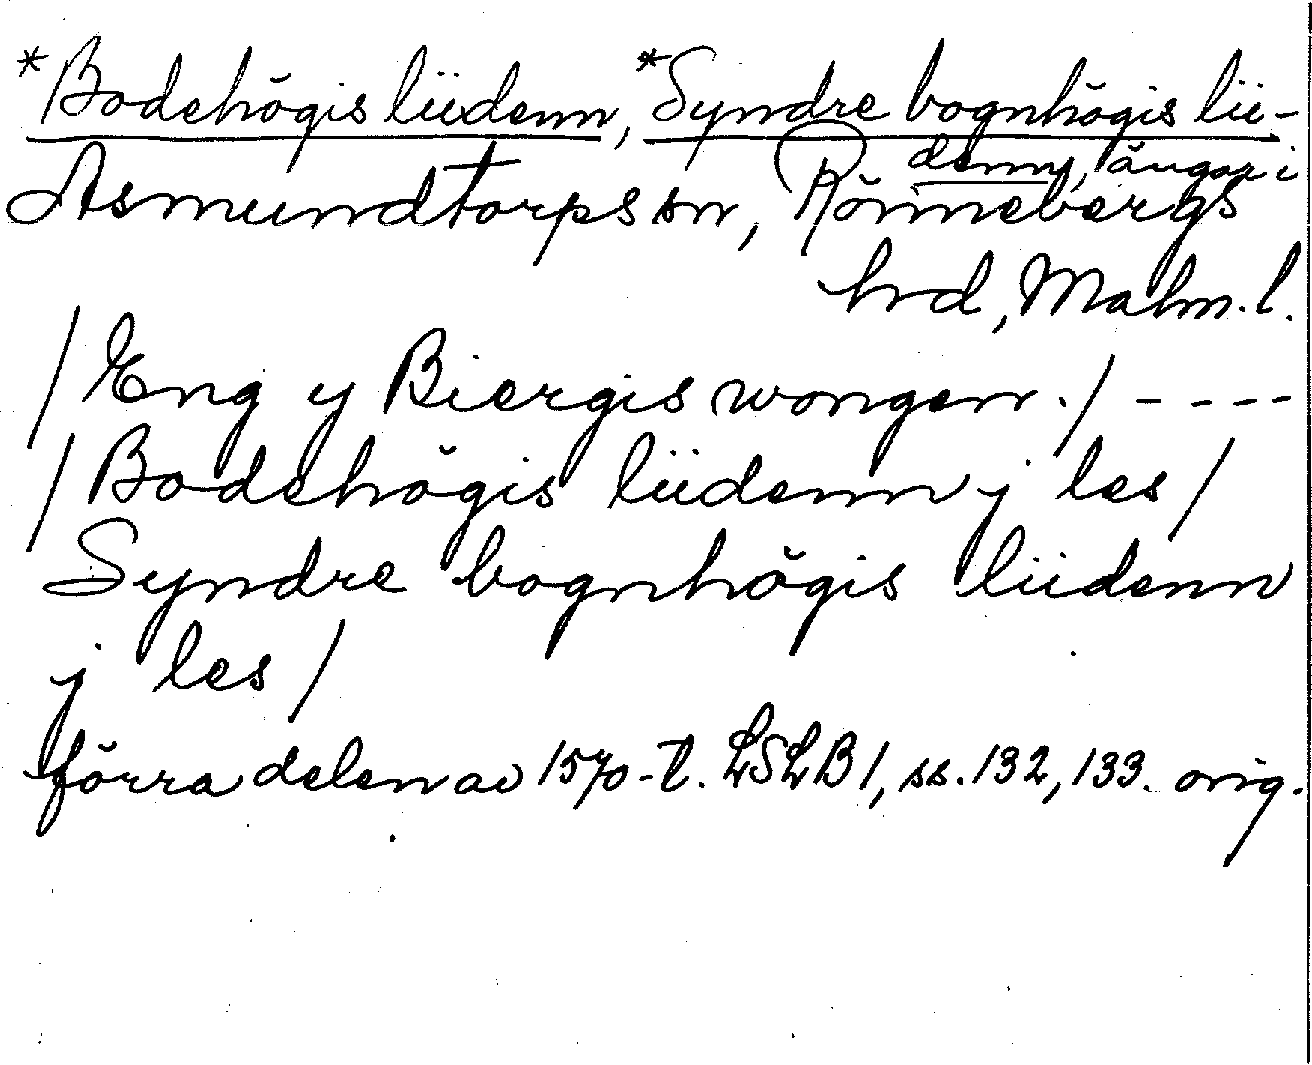 *Bodehögis liidenn, *Syndre bognhögis lii-
denn, ängar i
Asmundtorps sn, Rönnebergs
hrd, Malm. l.
/Eng y Biergis wongen./ - - - -
/Bodehögis liidenn j les/
Syndre bognhögis liidenn
j les/
förra delen av 1570-t. LSLB 1, ss. 132, 133. orig.